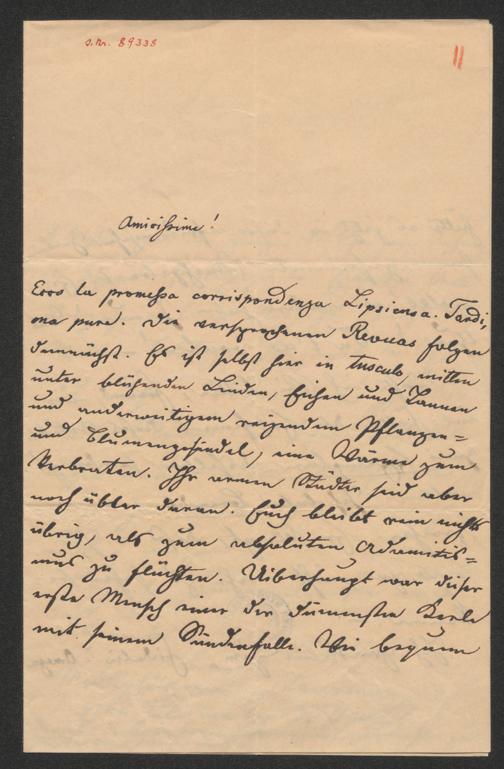 S.Nr. 89338
||
Amicissime!
Ecco la promessa corrispondenza Lipsiensa. Tardi,
ma pure. Die versprochenen Revuas folgen
demnächst. Es ist selbst hier in Tusculo, mitten
unter blühenden Linden, Eichen und Tannen
und anderweitigem reizendem Pflanzen=
und Blumengesindel, eine Wärme zum
Verbraten. Ihr armen Städter seid aber
noch übler daran. Euch bleibt rein nichts
übrig, als zum absoluten Adamitis=
mus zu flüchten. Uiberhaupt war dieser
erste Mensch einer der dümmsten Kerle
mit seinem Sündenfalle. Wie bequem